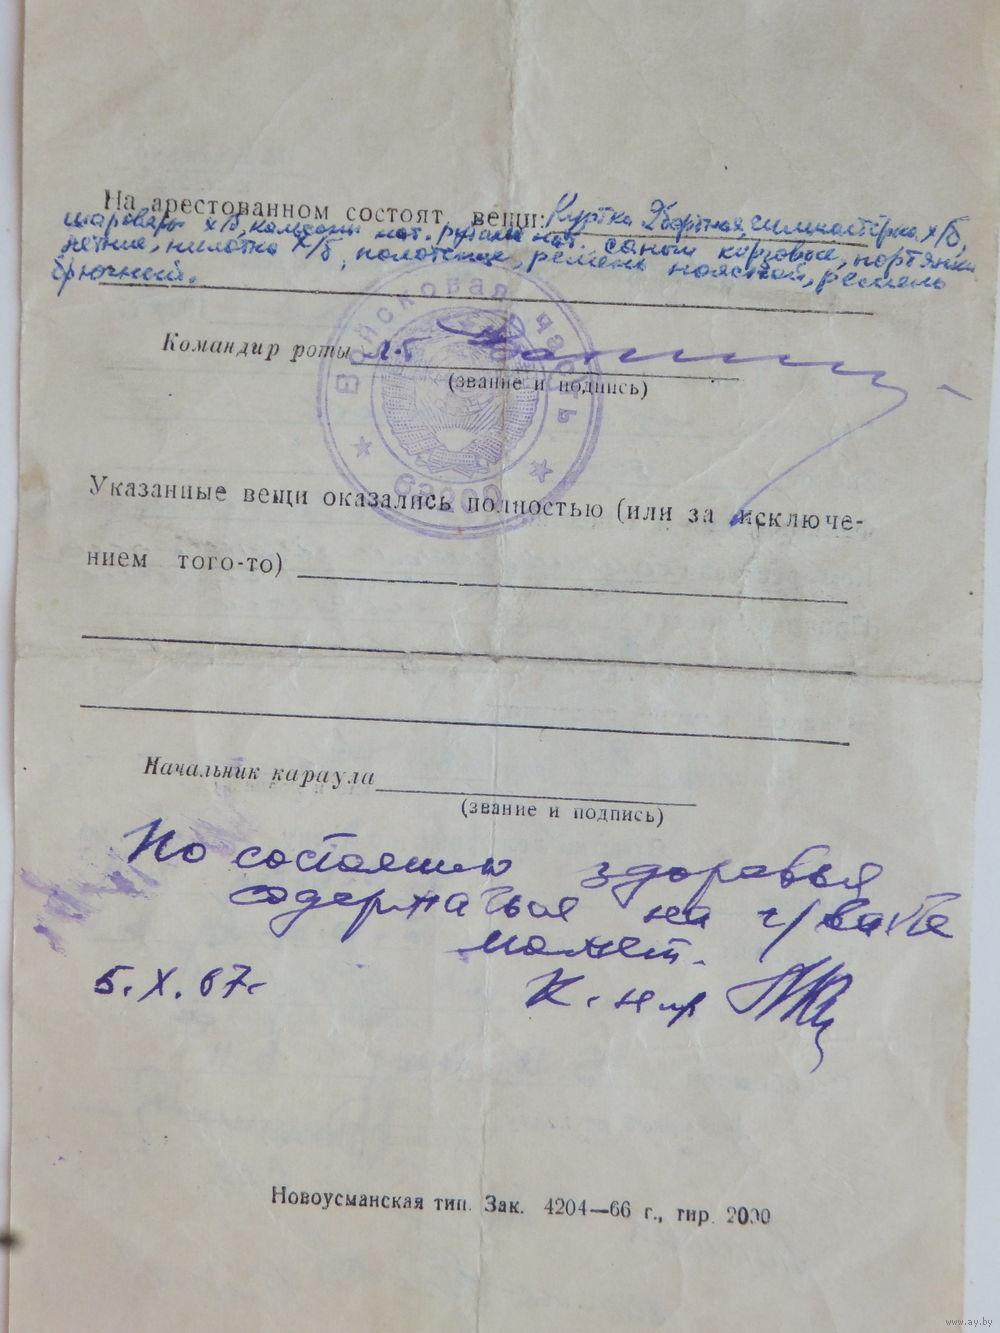 На арестованном состоят вещи: Куртка 2бортная гимнастёрка х/б,
шаровары х/б, кальсоны нат. рубаха нат. сапоги кирзовые, портянки
летние, пилотка х/б, полотенце, ремень поясной, ремень
брючной.
Командир роты л-т
(звание и подпись)
Войсковая часть
Указанные вещи оказались полностью (или за исключе-
нием того-то)
Начальник караула
(звание и подпись)
По состоянию здоровья
содержаться на г/вахте
может.
5.X.67г.
К.
Новоусманская тип. Зак. 4204—66 г., тир. 2000
www.ay.by